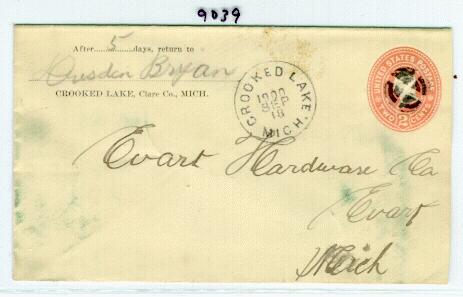 9039
After 5 days, return to
Bryan
CROOKED LAKE, Clare Co., MICH.
CROOKED LAKE,
1900
SEP
18
MICH.
UNITED STATES POSTAGE
2
TWO CENTS
Evart Hardware Co
Evart
Mich